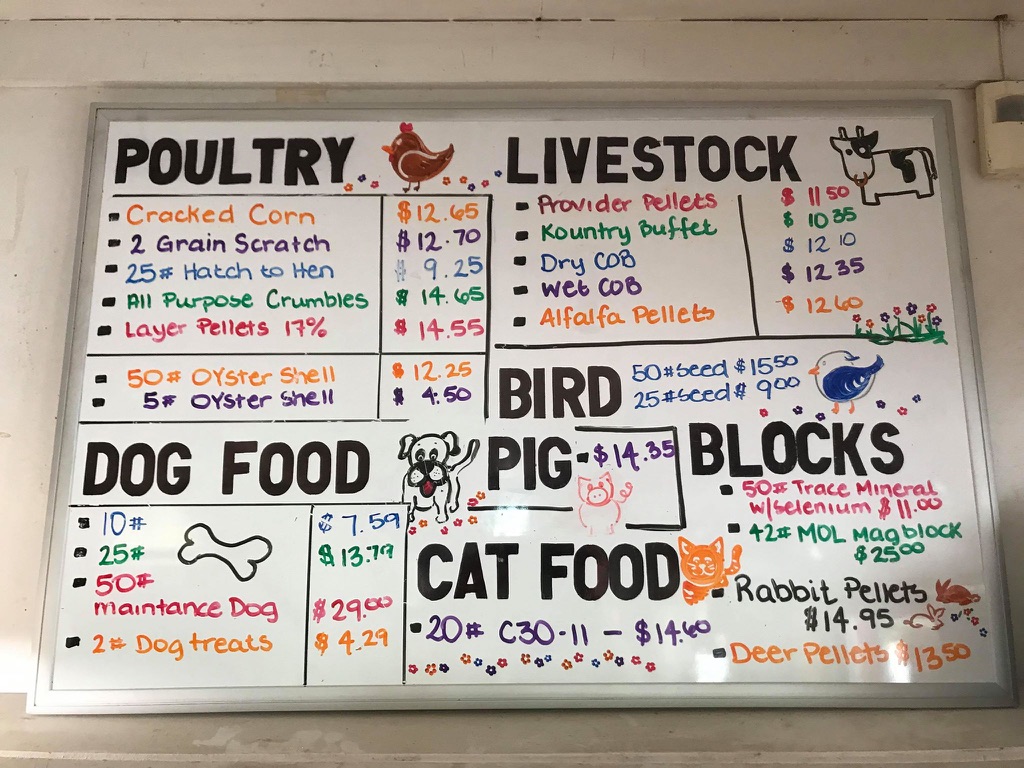 POULTRY
- Cracked Corn $12.65
- 2 Grain Scratch $12.70
- 25# Hatch to Hen $ 9.25
- All Purpose Crumbles $ 14.65
- Layer Pellets 17% $ 14.55
- 50# Oyster Shell $ 12.25
- 5# Oyster Shell $ 4.50
LIVESTOCK
- Provider Pellets $ 11 50
- Kountry Buffet $ 10 35
- Dry COB $ 12 10
- Wet COB $ 12 35
- Alfalfa Pellets $ 12 60
BIRD
50# Seed $ 15 50
25# Seed $ 9 00
DOG FOOD
- 10# $ 7.59
- 25# $ 13.79
- 50#
maintance Dog $ 29.00
- 2# Dog treats $ 4.29
PIG - $14.35
CAT FOOD
- 20# C30-11 - $14.60
BLOCKS
- 50# Trace Mineral
w/selenium $ 11.00
- 42# MOL Mag block
$ 25 00
- Rabbit Pellets
$14.95
- Deer Pellets $ 13 50